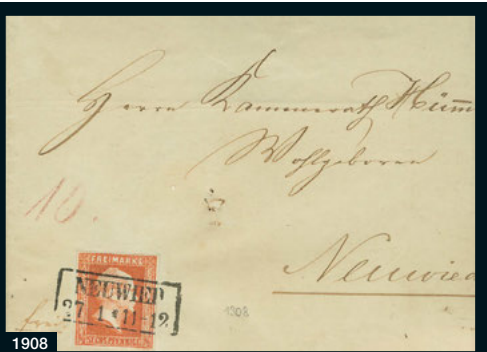 Herrn Kammerrath Hüm̅
Wohlgeboren
10.
Neuwied
FREIMARKE
NEUWIED
27 1 * 11-12
1908
1908